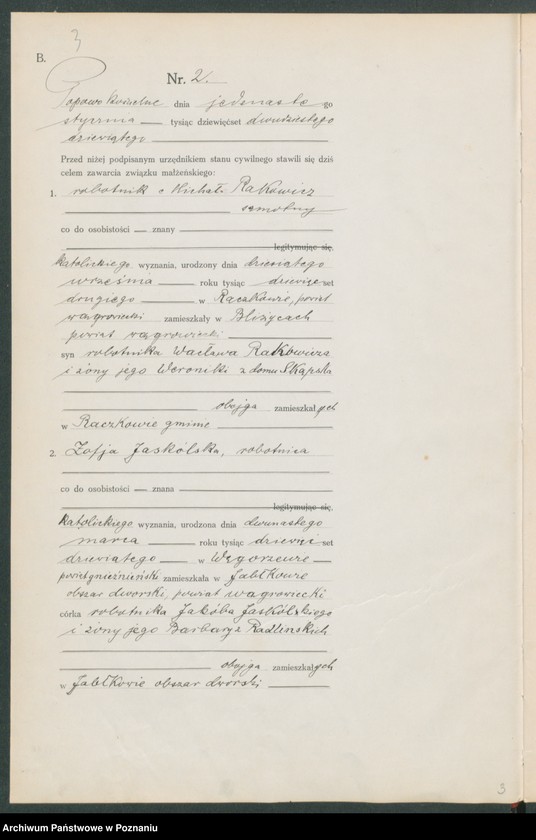 3
B.
Nr. 2.
Popowo Kościelne dnia jedenaste go
stycznia tysiąc dziewięćset dwudziestego
dziewiątego
Przed niżej podpisanym urzędnikiem stanu cywilnego stawili się dziś
celem zawarcia związku małżeńskiego:
1. robotnik Michał Rakowicz
samotny
co do osobistości znany
legitymując się,
katolickiego wyznania, urodzony dnia dziesiątego
września roku tysiąc dziewięć set
drugiego w Raczkowie, powiat
wągrowiecki zamieszkały w Bliżycach
powiat wągrowiecki
syn robotnika Wacława Rakowicza
i żony jego Weroniki z domu Skąpska
obojga zamieszkałych
w Raczkowie gminie
2. Zofja Jaskólska, robotnica
co do osobistości znana
legitymując się,
katolickiego wyznania, urodzona dnia dwunastego
marca roku tysiąc dziewięć set
dziewiątego w Węgorzewie
powiat gnieźnieński zamieszkała w Jabłkowie
obszar dworski, powiat wągrowiecki
córka robotnika Jakóba Jaskólskiego
i żony jego Barbary z Radlinskich
obojga zamieszkałych
w Jabłkowie obszar dworski
3
Archiwum Państwowe w Poznaniu